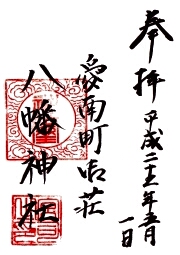 奉拝
平成二十三年五月
一日
愛南町御荘
八幡神社